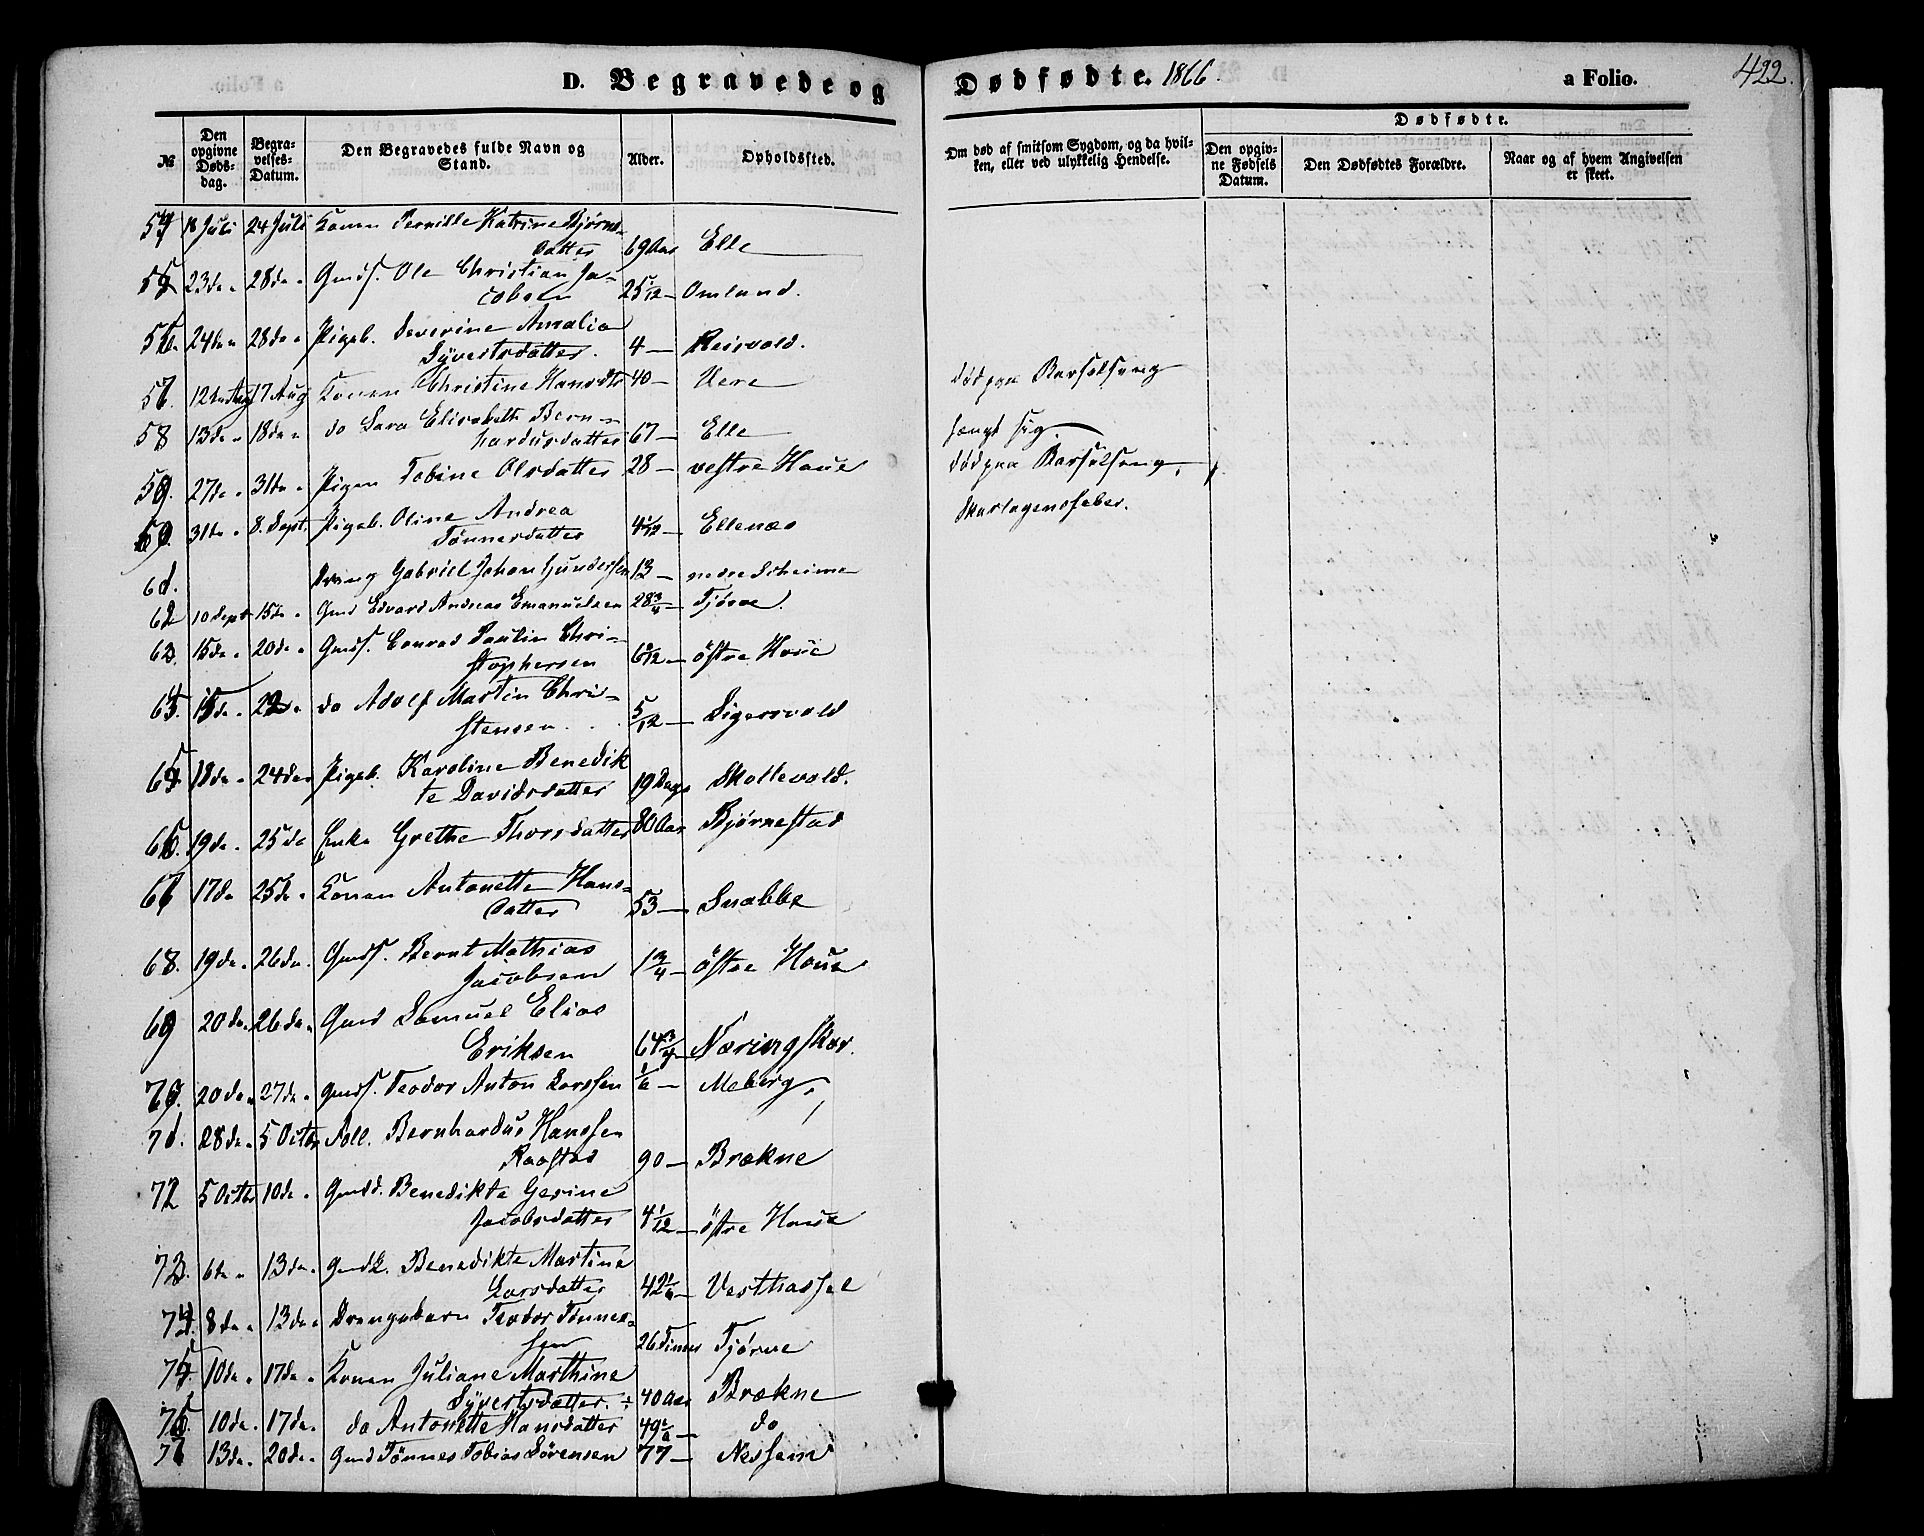 D. Begravede og Dødfødte. 1866. a Folio. 422.
№ Den opgivne Dødsdag. Begravelses-Datum. Den Begravedes fulde Navn og Stand. Alder. Opholdssted. Om død af smitsom Sygdom, og da hvilken, eller ved ulykkelig Hendelse. Dødfødte. Den opgivne Fødsels Datum. Den Dødfødtes Forældre. Naar og af hvem Angivelsen er skeet.
18 Juli 24 Juli Konen Pernille Katrine Bjørns-
datter 69 Aar Elle
23 do 28 do Gmds. Ole Christian Ja-
cobsen 25 1/12 Omland.
24 do 28 do Pigeb. Severine Amalia
Syvertsdatter. 4 Reisvold.
12te Aug 17 Aug Konen Christine Hansdtr 40 Vere død paa Barselseng
58 13 do 18 do do Sara Elisabeth Bern-
hardusdatter 67 Elle hængt sig
59. 27 do 31 do Pigen Tobine Olsdatter 28 vestre Haue død paa Barselseng.
60. 31 do 8. Sept. Pigeb. Oline Andrea
Tønnesdatter 4 1/12 Ellenæs Skarlagensfeber.
61. Dreng Gabriel Johan Gundersen 13 nedre Scheime
62 10 Sept 15 do Gmd Edvard Andreas Emanuelsen 28 3/4 Tjørve.
63. 15 do 20 do Gmds. Conrad Paulin Chri-
stophersen østre Haue
15 do 22 do do Adolf Martin Chri-
stensen 5/12 Sigersvold
18 do 24 do Pigeb. Karoline Benedik
te Davidsdatter 19 Dage Skollevold.
66. 19 do 25 do Enke Grethe Thorsdatter 80 Aar Bjørnestad
67 17 do 25 do Konen Antonette Hans-
datter 53 Snabbe
68. 19 do 26 do Gmds. Bernt Mathias
Jacobsen 1 3/4 østre Haue
69 20 do 26 do Gmd Samuel Elias
Eriksen 64 3/4 Næringskar.
70. 20 do 27 do Gmds. Teodor Anton Larssen 1/6 Meberg
71. 28 do 5 Octbr Bernhardus Hanssen
Raastad 90 Brækne
72 5 Octbr 10 do Gmdd. Benedikte Gesine
Jacobsdatter 4 1/12 østre Haue
73. 6 do 13 do Gmdk. Benedikte Martine
Larsdatter 42 1/6 Vesthassel
74. 8 do 13 do Drengebarn Teodor Tønnes-
sen 26 Timer Tjørve
75. 10 do 17 do Konen Juliane Marthine
Syvertsdatter. 40 Aar Brækne
76. 10 do 17 do do Antonette Hansdatter do
77 13 do 20 do Gmd Tønnes Tobias Sørensen 77 Nessem